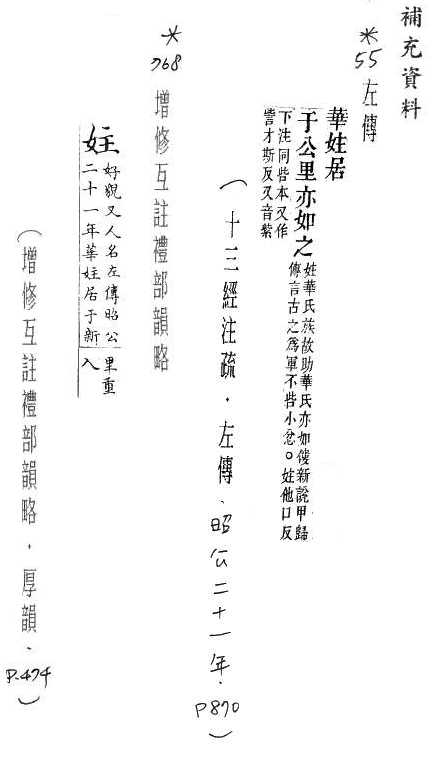 補充資料
*55 左傳
華妵居
于公里亦如之
妵華氏族故助華氏亦如僂新說甲歸
傳言古之為軍不呰小忿。妵他口反
下注同呰本又作
訾才斯反又音紫
(十三經注疏.左傳、昭公二十一年.P870)
*768 增修互註禮部韻略
妵
好貌又人名左傳昭公
二十一年華妵居于新
里重
入
(增修互註禮部韻略.厚韻.P.474)